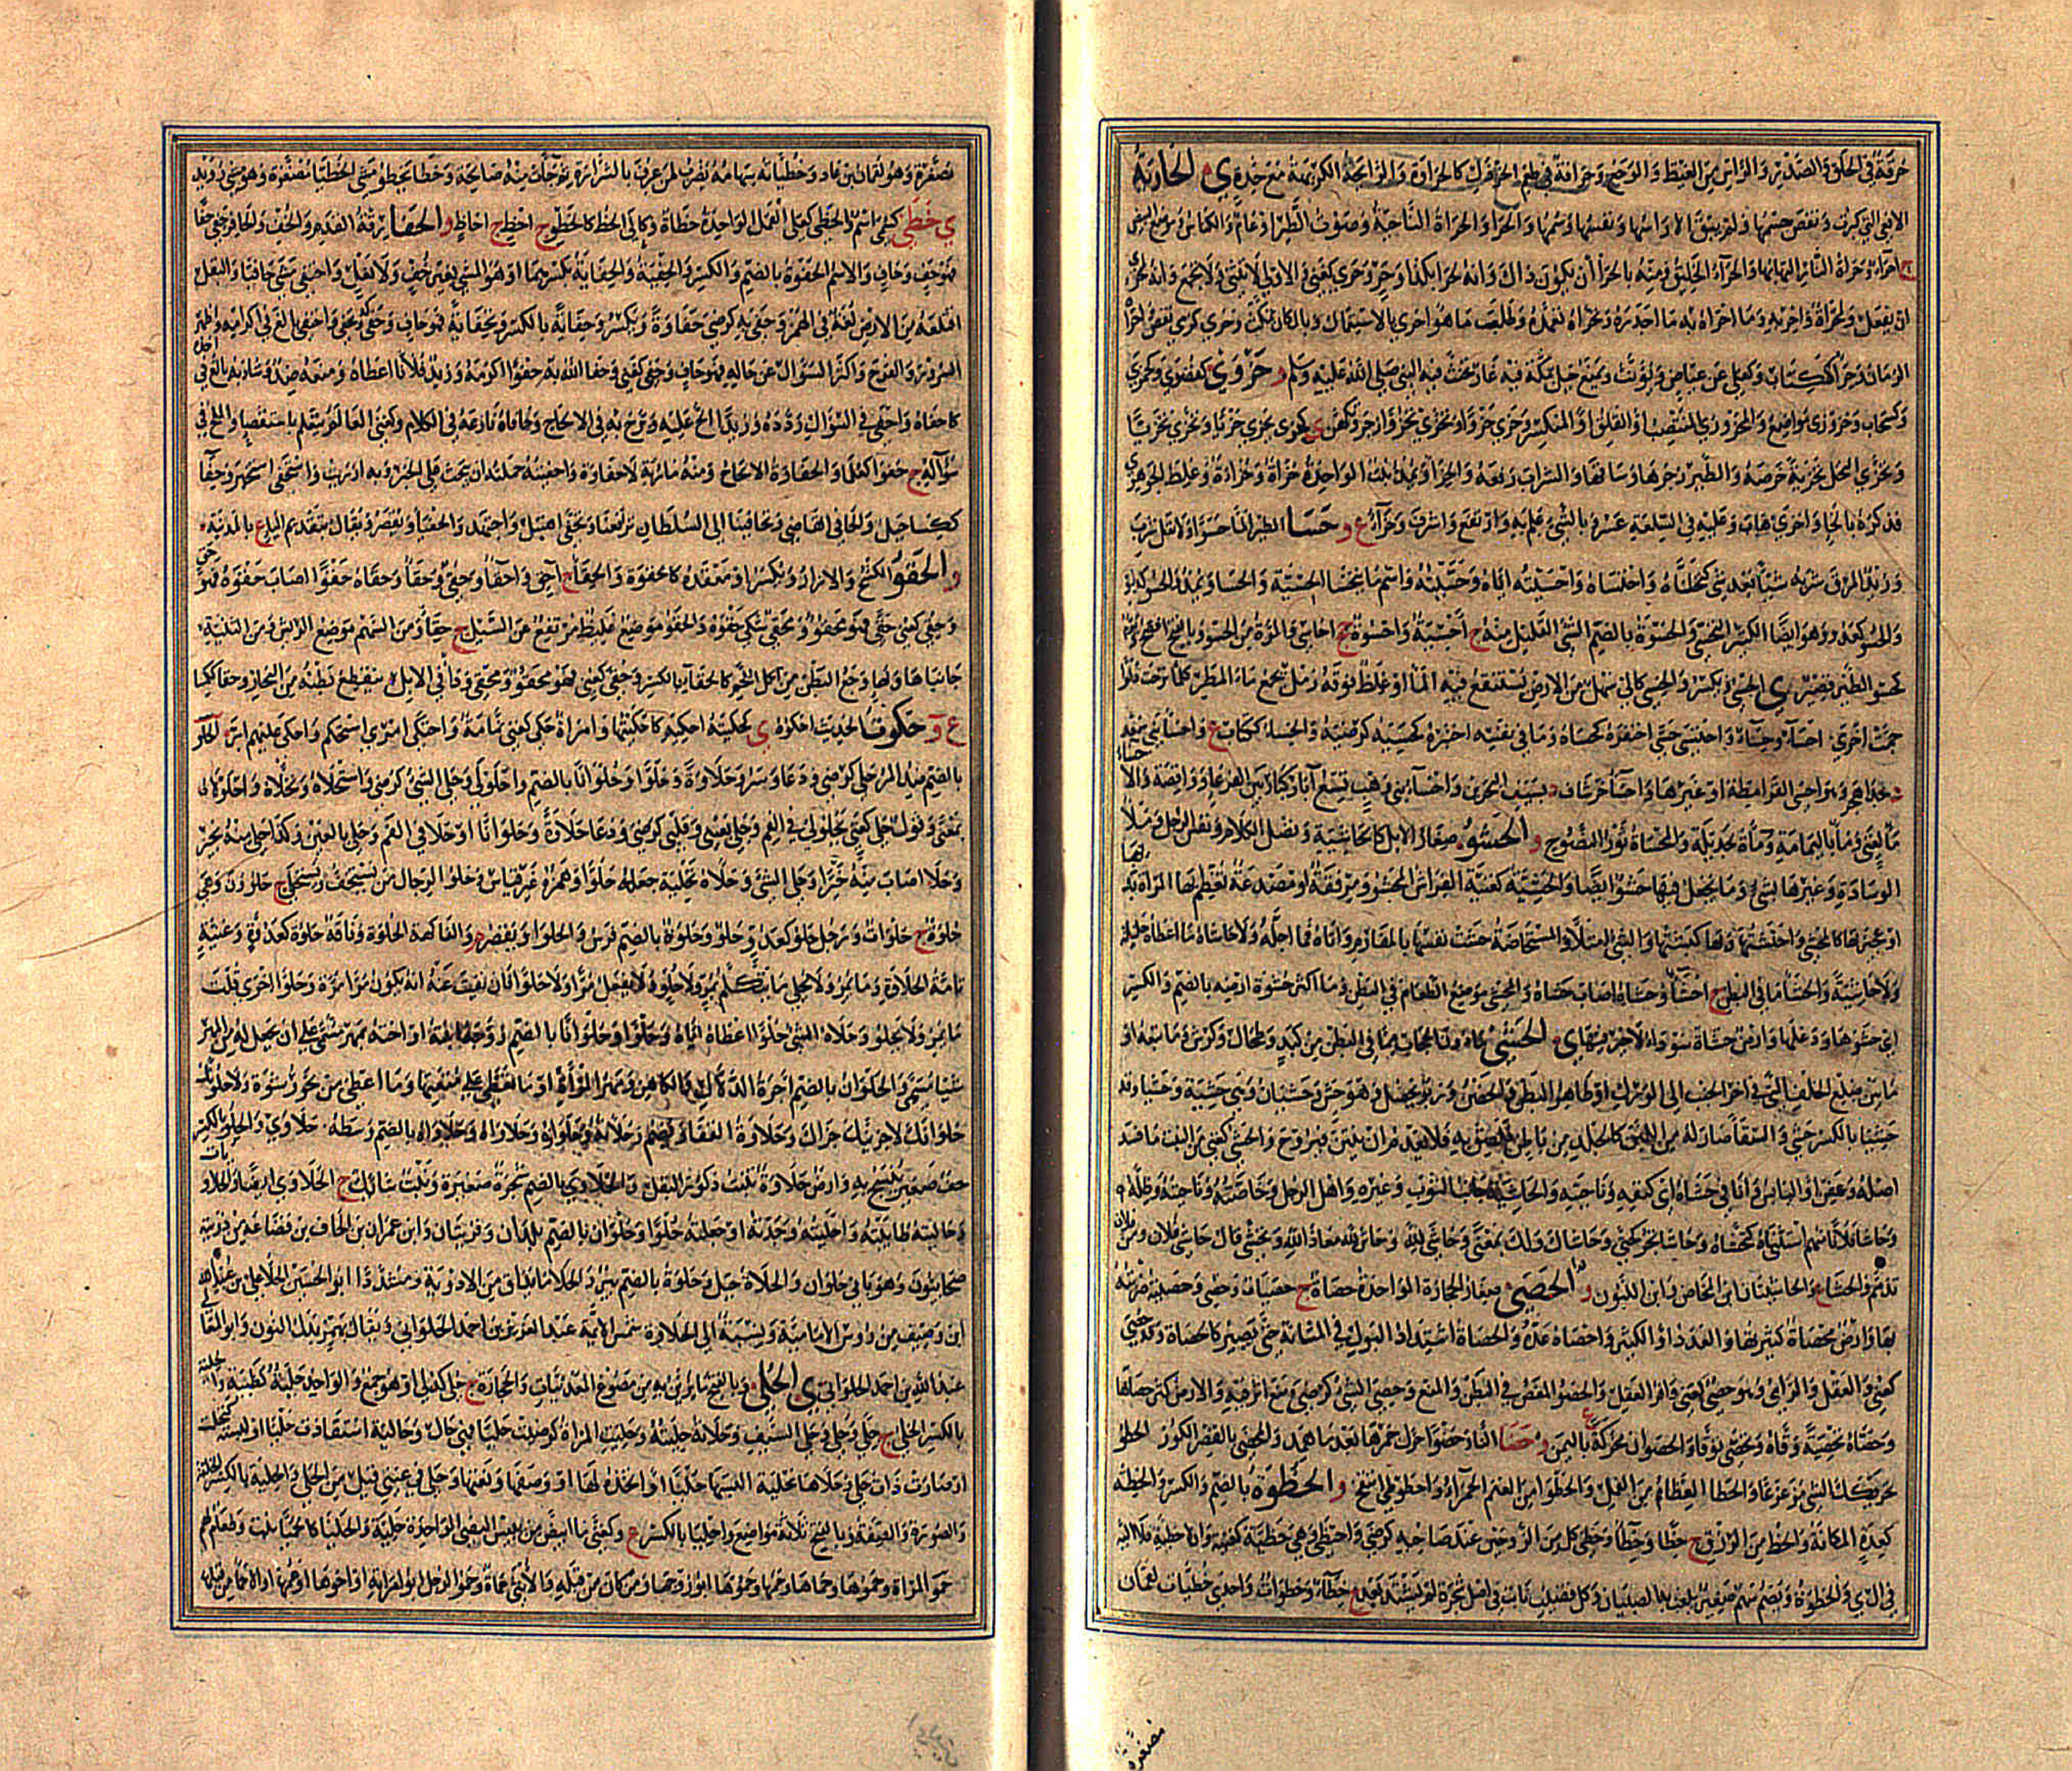 حرقة في الحلق والصدر والرأس من الغيظ والوجع وحرافة في طعم الخردل كالحراوة والرائحة الكريهة مع حدة ي الحارية
الافعى التي كبرت ونقص جسمها ولم يبق الا راسها ونفسها وسمها والحرا والحراة الناحية وصوت الطير او عام والكناس وموضع البيض
ج احراء وحراة النار التهابها والحراء الخليق ومنه بالحرا ان يكون ذاك وانه لحرا بكذا وحر وحري كغني والاولى لا يثنى ولا يجمع وانه لمحرى
ان يفعل ولمحراة واحر به وما احراه به ما اجدره وتحراه تعمده وطلب ما هو احرى بالاستعمال وبالمكان تمكث وحرى كرمى نقص واحراه
الزمان وحراء ككتاب وكعلى عن عياض ويؤنث ويمنع جبل بمكة فيه غار تحنث فيه النبي صلى الله عليه وسلم و حزوى كقصوى
وكسحاب وحزوزى مواضع والمحزوزي المنتصب او القلق او المنكسر وحزى حزوا وتحزى تحزوا زجر وتكهن ي كحزى يحزي حزيا وتحزى تحزيا
وحزى النخل تحزية خرصه والطير زجرها وساقها والسراب رفعه والحزا ويمد نبت الواحدة حزاة وحزاءة وغلط الجوهري
فذكره بالخاء واحزى هاب وعليه في السلعة عسر وبالشيء علم به وارتفع واشرف وحزاء ع و حسا الطير الماء حسوا ولا تقل شرب
وزيد المرق شربه شيئا بعد شيء كتحساه واحتساه واحسيته اياه وحسيته واسم ما يتحسى الحسية والحسا ويمد والحسو كدلو
والحسو كعدو وهو ايضا الكثير التحسي والحسوة بالضم الشيء القليل منه ج احسية واحسوة جج احاسي والمرة من الحسو وبالفتح
كحسو الطير قصير ي الحسي ويكسر والحسى كالى سهل من الارض يستنقع فيه الماء او غلظ فوقه رمل يجمع ماء المطر كلما نزحت دلوا
جمت اخرى ج احساء وحساء واحتسى حسى احتفره كحساه وما في نفسه اختبره كحسيه كرضيه والحساء ككتاب ع واحساء بني سعد
حذاء هجر وهو احساء القرامطة او غيرها واحساء خرشاف بسيف البحرين واحساء بني وهب تسع ابار كبار بين القرعاء وواقصة والاحساء
ماء لغني وماء باليمامة وماءة لجديلة والمحساة ثور النضوح و الحشو صغار الابل كالحاشية وفضل الكلام ونفس الرجل وملأ
الوسادة وغيرها بشيء وما يجعل فيها حشو ايضا والحشية كغنية الفراش المحشو ومرفقة او مصدغة تعظم بها المراة بدنها
او عجيزتها كالمحشى واحتشتها وبها كبستها والشيء امتلا والمستحاضة حشت نفسها بالمفارم واتاه فما اجله ولا حاشاه ما اعطاه جليلة
ولا حاشية والحشا ما في البطن ج احشاء وحشاه اصاب حشاه والمحشى موضع الطعام في البطن وما اكثر حشوة ارضه بالضم والكسر
اي حشوها ودغلها وارض حشاة سوداء لا خير فيها ي الحشى ما دون الحجاب مما في البطن من كبد وطحال وكرش وما تبعه او
ما بين ضلع الخلف التي في اخر الجنب الى الورك او ظاهر البطن والحضن وربو يحصل وهو حش وحشيان وهي حشية وحشيا وقد
حشيا بالكسر حشى والسقاء صار له من اللبن كالجلد من باطن فلصق به فلا يعدم ان ينتن فيروح والحشي كغني من النبت ما فسد
اصله وعفن او اليابس وانا في حشاه اي كنفه وناحيته والحاشية جانب الثوب وغيره واهل الرجل وخاصته وناحيته وظله
وحاشا فلانا منهم استثناه كتحشاه وحاشا تجر كحتى وحاشاك ولك بمعنى وحاشى لله وحاش لله معاذ الله وتحشى قال حاشى فلان
تذمم والحشاء ع والحاشيتان ابن المخاض وابن اللبون و الحصى صغار الحجارة الواحدة حصاة ج حصيات وحصي وحصيته ضربته
بها وارض محصاة كثيرتها والعدد او الكثير واحصاه عده والحصاة اشتداد البول في المثانة حتى يصير كالحصاة وقد حصي
كعني والعقل والراي وهو حصي كغني وافر العقل والحصو المغص في البطن والمنع وحصي الشيء كرضي اثر فيه والارض كثر حصاها
وحصاه تحصية وقاه وتحصى توقى والحصوان محركة ع باليمن و حضا النار حضوا حرك جمرها بعد ما همد والمحضى بالقصر الكور الحطو
تحريكك الشيء مزعزعا والحطا العظام من القمل والحطواء من الغنم الحمراء واحطوطى انتفخ و الحظوة بالضم والكسر والحظة
كعدة المكانة والحظ من الرزق ج حظا وحظاء وحظي كل من الزوجين عند صاحبه كرضي واحتظى وهي حظية كغنية
والحظوة ويضم سهم صغير يلعب به الصبيان وكل قضيب نابت في اصل شجرة لم يشتد بعد ج حظاء وحظوات واحدى حظيات لقمان
مصغرة
مصغرة وهو لقمان بن عاد وحظياته سهامه يضرب لمن عرف بالشرارة ثم جاءت منه صالحة وحظا يحظو مشى الحظيا مصغرة وهو مشي رويد
ي حظي كسمي اسم والحظى كعلى القمل الواحدة حظاة وكالى الحظ كالحظو ج احظ جج احاظ و الحفا رقة القدم والخف والحافر حفي حفا
فهو حف وحاف والاسم الحفوة بالضم والكسر والحفية والحفاية بكسرهما او هو المشي بغير خف ولا نعل واحتفى مشى حافيا والبقل
اقتلعه من الارض لغة في الهمز وحفي به كرضي حفاوة ويكسر وحفاية بالكسر وتحفاية فهو حاف وحفي كغني وتحفى واحتفى بالغ في اكرامه واظهر
السرور والفرح واكثر السؤال عن حاله فهو حاف وحفي كغني وحفا الله به حفوا اكرمه وزيد فلانا اعطاه ومنعه ضد وشاربه بالغ في اخذه
كاحفاه واحفى في السؤال ردده وزيدا الح عليه وبرح به في الالحاح وحافاه نازعه في الكلام وكغني العالم يتعلم باستقصاء والملح في
سؤاله ج حفواء كعلماء والحفاوة الالحاح ومنه ماربة لا حفاوة واحفيته حملته ان يبحث عن الخبر وبه ازريت واستحفى استخبر وحفاء
ككساء جبل والحافي القاضي وتحافينا الى السلطان ترفعنا وتحفى اهتبل واجتهد والحفياء ويقصر ويقال بتقديم الياء ع بالمدينة
و الحقو الكشح والازار ويكسر او معقده كالحقوة والحقاء ج احق واحقاء وحقي وحقاء وحقاه حقوا اصاب حقوه فهو حقي
وحقي كعني حقا فهو محقو وتحقى شكى حقوه والحقو موضع غليظ مرتفع عن السيل ج حقاء ومن السهم موضع الريش ومن الثنية
جانباها وبهاء وجع البطن من اكل اللحم كالحقاء بالكسر وحقي كعني فهو محقو ومحقي وداء في الابل ينقطع بطنه من النحاز وحقاء ككساء
ع و حكوت الحديث احكوه ي كحكيته احكيه كاحكيتها وامراة حكي كغني نمامة واحتكى امري استحكم واحكى عليهم ابر و الحلو
بالضم ضد المر حلي كرضي ودعا وسرو حلاوة وحلوا وحلوانا بالضم واحلولى وحلي الشيء كرضي واستحلاه وتحلاه واحلولاه
بمعنى وقول حلي كغني يحلولي في الفم وحلي بعيني وقلبي كرضي ودعا حلاوة وحلوانا او حلا في الفم وحلي بالعين وكذا حلي منه بخير
وحلا اصاب منه خيرا وحلى الشيء وحلاه تحلية جعله حلوا وهمزه غير قياس وحلو الرجال من يستخف ويستحلى ج حلوون وهي
حلوة ج حلوات ورجل حلو كعدو حلو وحلوة بالضم فرس والحلواء ويقصر م والفاكهة الحلوة وناقة حلوة كعدوة وغنية
تامة الحلاوة وما يمر ولا يحلي ما يتكلم بمر ولا حلو ولا يفعل مرا ولا حلوا فان نفيت عنه انه يكون مرا مرة وحلوا اخرى قلت
ما يمر ولا يحلو وحلاه الشيء حلوا اعطاه اياه وحلوا وحلوانا بالضم زوجه ابنته او اخته بمهر مسمى على ان يجعل له من المهر
شيئا مسمى والحلوان بالضم اجرة الدلال والكاهن ومهر المراة او ما تعطى على متعتها وما اعطي من نحو رشوة
حلوانك لاجزينك جزاءك وحلاوة القفا ويضم وحلاوته وحلواؤه وحلاواه بالضم وسطه ج حلاوى والحلو بالكسر
حف صغير ينسج به وارض حلاوة تنبت ذكور البقل والحلاوى بالضم شجرة صغيرة ونبت شائك ج الحلاوى ايضا والحلاويات
وحاليته طايبته واحليته وجدته او جعلته حلوا وحلوان بالضم بلدان وقريتان وابن عمران بن الحاف بن قضاعة من ذريته
صحابيون وهو باني حلوان والحلاة جبل وحلوة بالضم بئر والحلا ما يداف من الادوية ومشددا ابو الحسين الحلا علي بن عبيد الله
ابن وصيف من رؤس الامامية وليس نسبة الى الحلاوة شمس الائمة عبد العزيز بن احمد الحلواني ويقال بهمز بدل النون وابو المعالي
عبد الله بن احمد الحلواني ي الحلي وبالفتح ما يزين به من مصوغ المعدنيات والحجارة ج حلي كدلي او هو جمع والواحد حلية كظبية والحلية
بالكسر الحلي ج حلى وحلى وحلي السيف وحلاته حليته وحليت المراة كرضيت حليا فهي حال وحالية استفادت حليا او لبسته كتحلت
او صارت ذات حلي وحلاها تحلية البسها حليا او اتخذه لها او وصفها ونعتها وحلي في عيني قيل من الحلي والحلية بالكسر الخلقة
والصورة والصفة وبالفتح ثلاثة مواضع واحليا بالكسر ع وكغني ما ابيض من يبيس النصي الواحدة حلية والحليا كالحميا نبت وطعام لهم
حمو المراة وحموها وحماها وحمها وحمؤها ابو زوجها ومن كان من قبله والانثى حماة وحمو الرجل ابو امراته او اخوها او عمها او الاحماء من قبلها